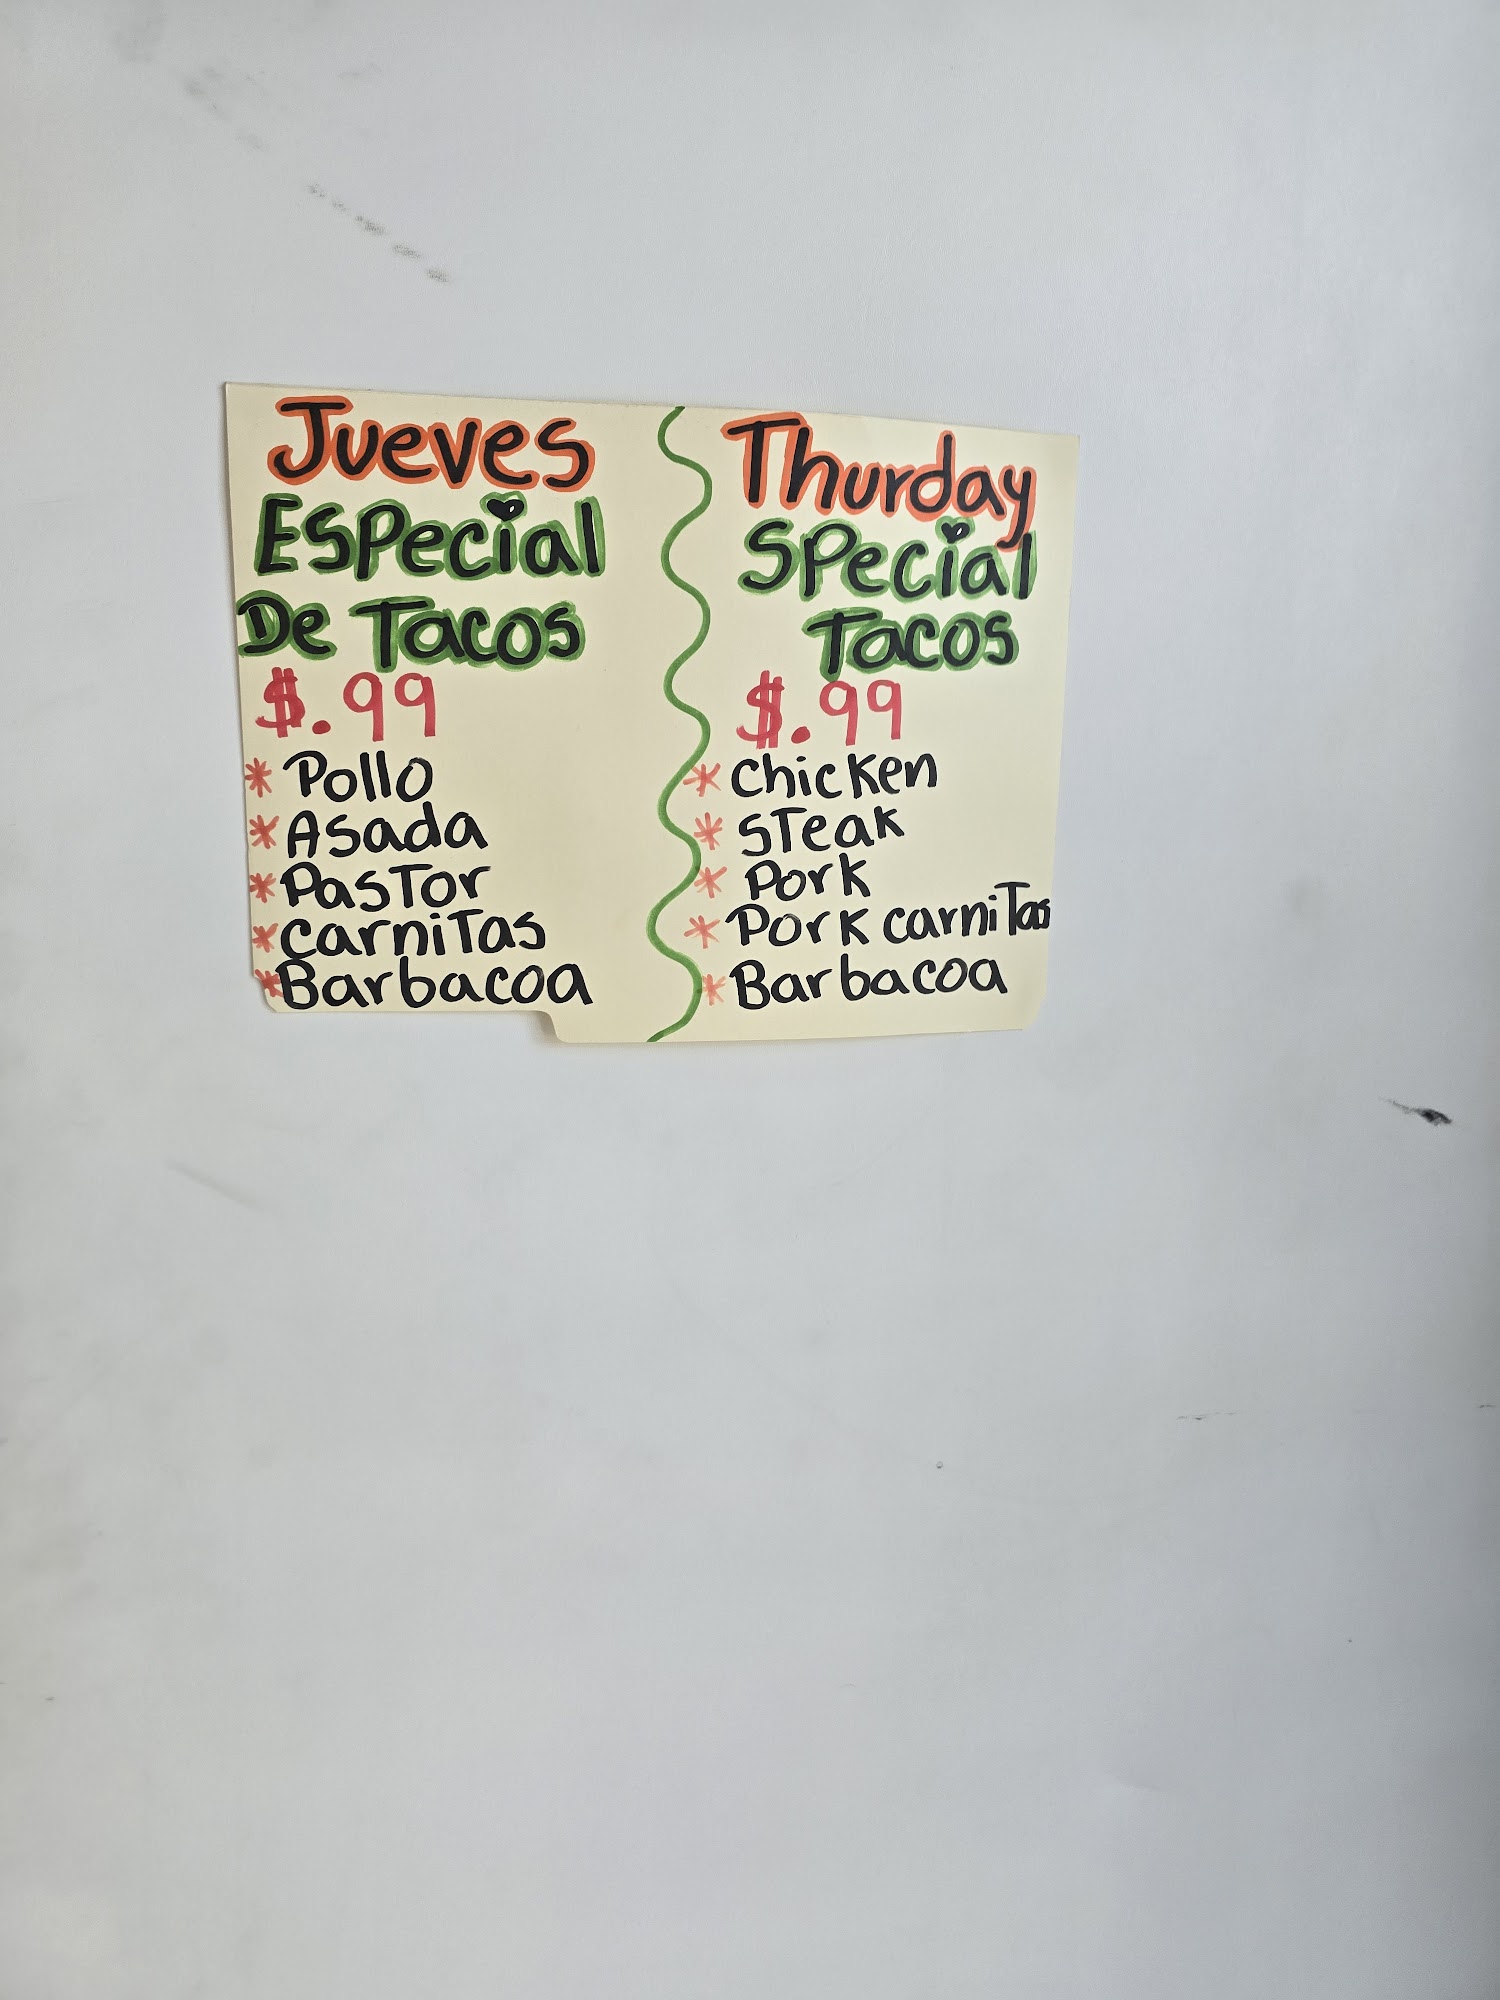 Jueves
Especial
De Tacos
$.99
* Pollo
* Asada
* Pastor
* Carnitas
* Barbacoa
Thurday
Special
Tacos
$.99
* Chicken
* Steak
* Pork
* Pork carnitas
* Barbacoa